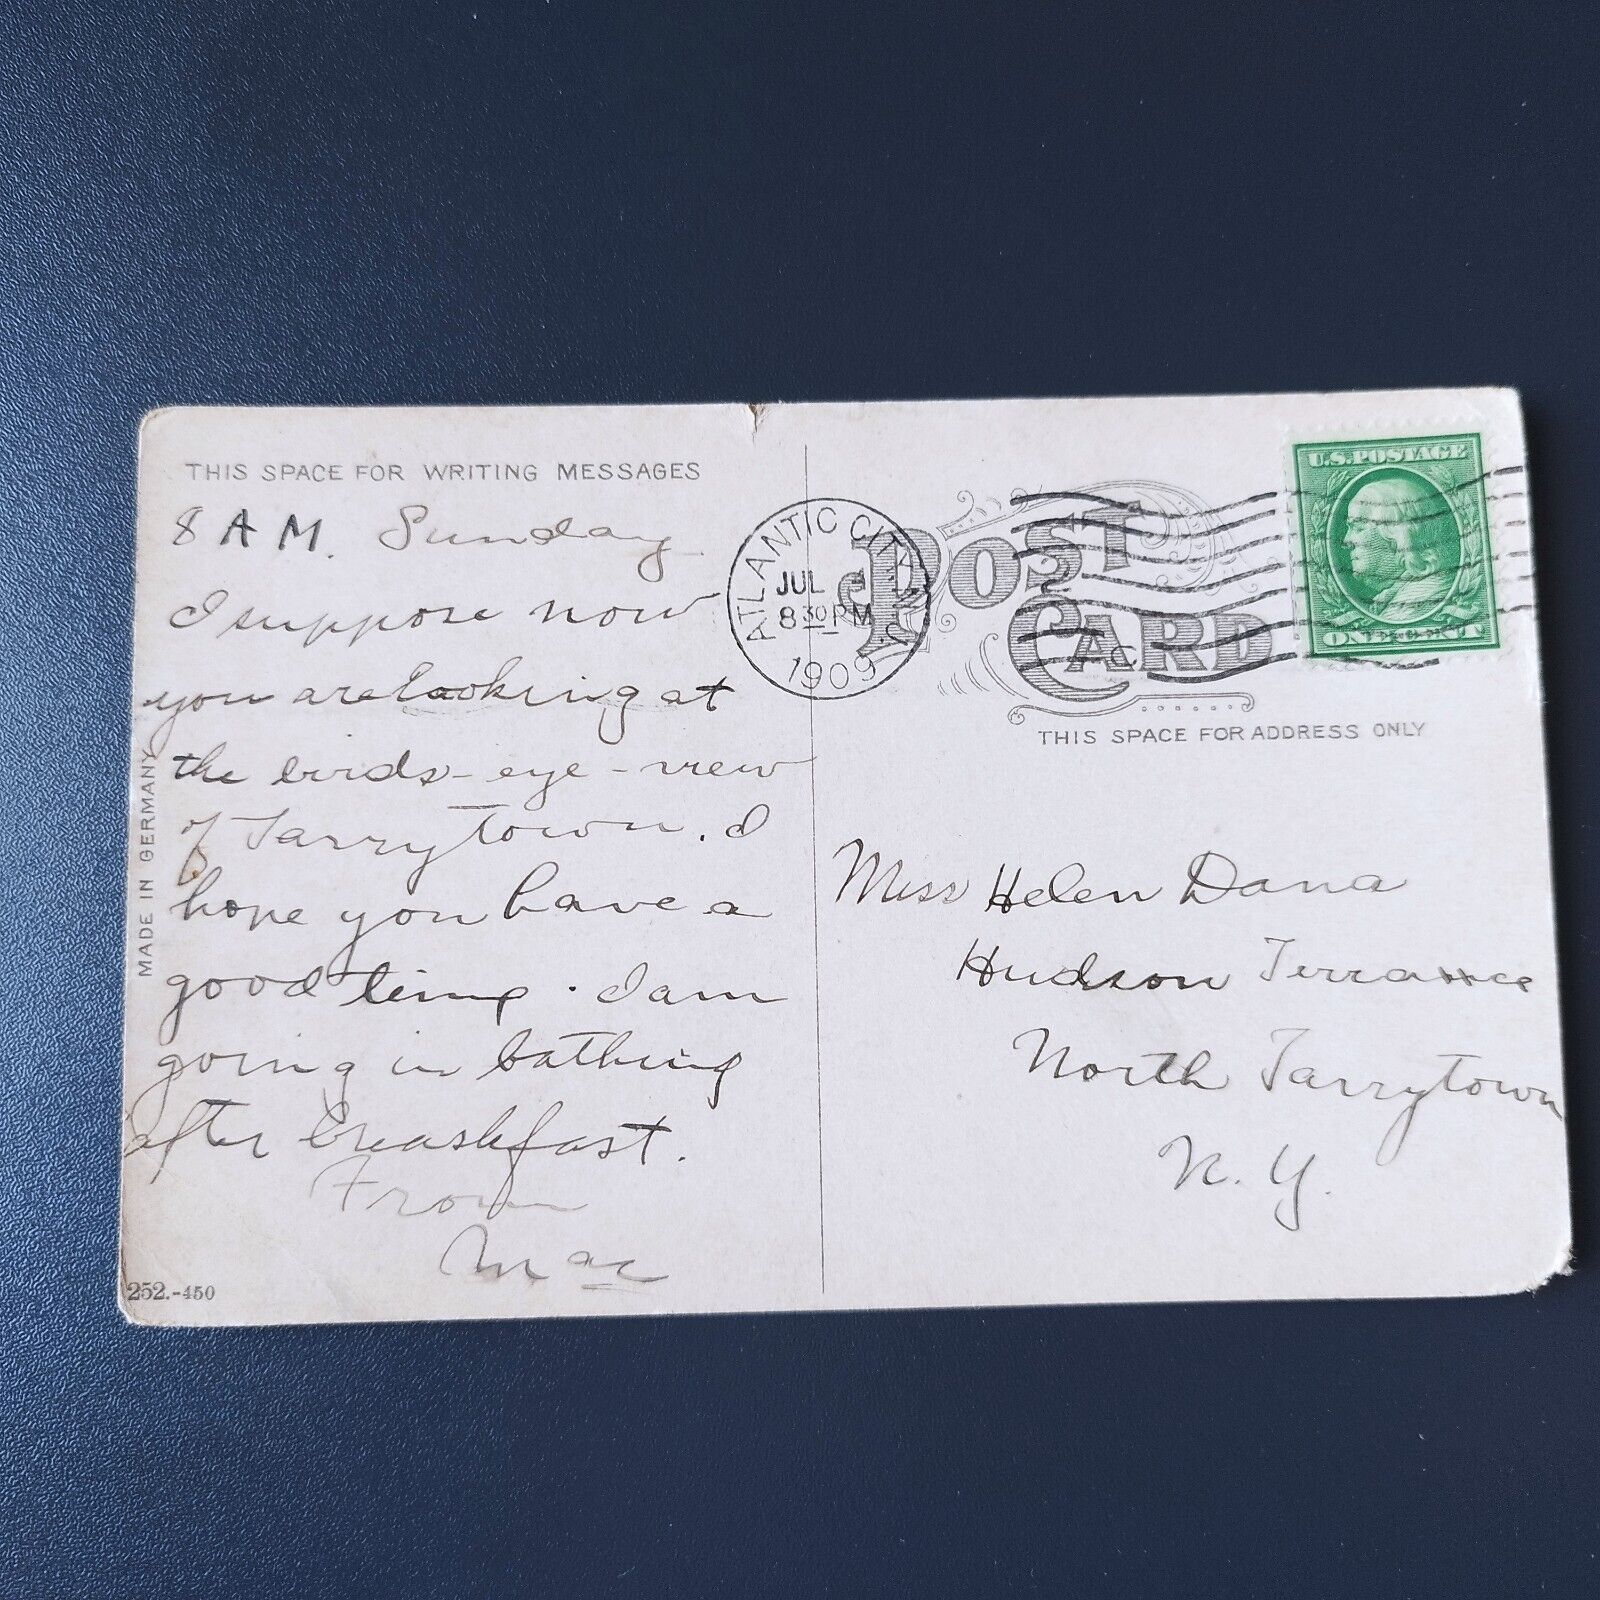 THIS SPACE FOR WRITING MESSAGES
8 A M. Sunday
I suppose now
you are looking at
the birds-eye-view
of Tarrytown. I
hope you have a
good time. I am
going in bathing
after breaskfast.
From
Mac
MADE IN GERMANY
252.-450
ATLANTIC CITY, N.J.
JUL
8 30 PM
1909
POST
CARD
C
THIS SPACE FOR ADDRESS ONLY
U.S. POSTAGE
ONE CENT
Miss Helen Dana
Hudson Terrace
North Tarrytown
N. Y.